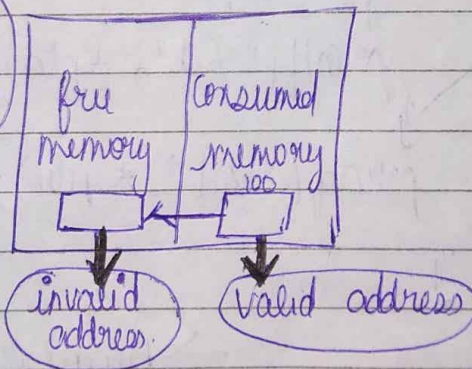 free
memory
Consumed
memory
100
invalid
address.
Valid address